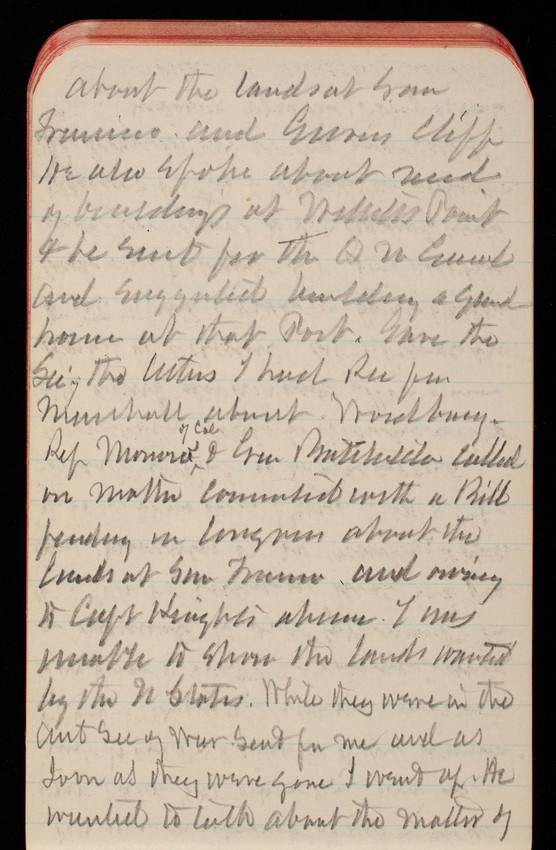 about the lands at San
Francisco. and Gurvis Cliff
He also spoke about need
of buildings at Willets Point
& he sent for the Q M Genl
and suggested building a guard
house at that Post. Gave the
Sec'y the letters I had Rec from
Marshall about Woodbury.
Rep Morrow of Cal & Gen called
on matter connected with a Bill
pending in Congress about the
lands at San Franco and owing
to Capt Knights absence I was
unable to show the lands wanted
by the U States. While they were in the
Asst Sec of War send for me and as
soon as they were gone I went up. He
wanted to talk about the matter of